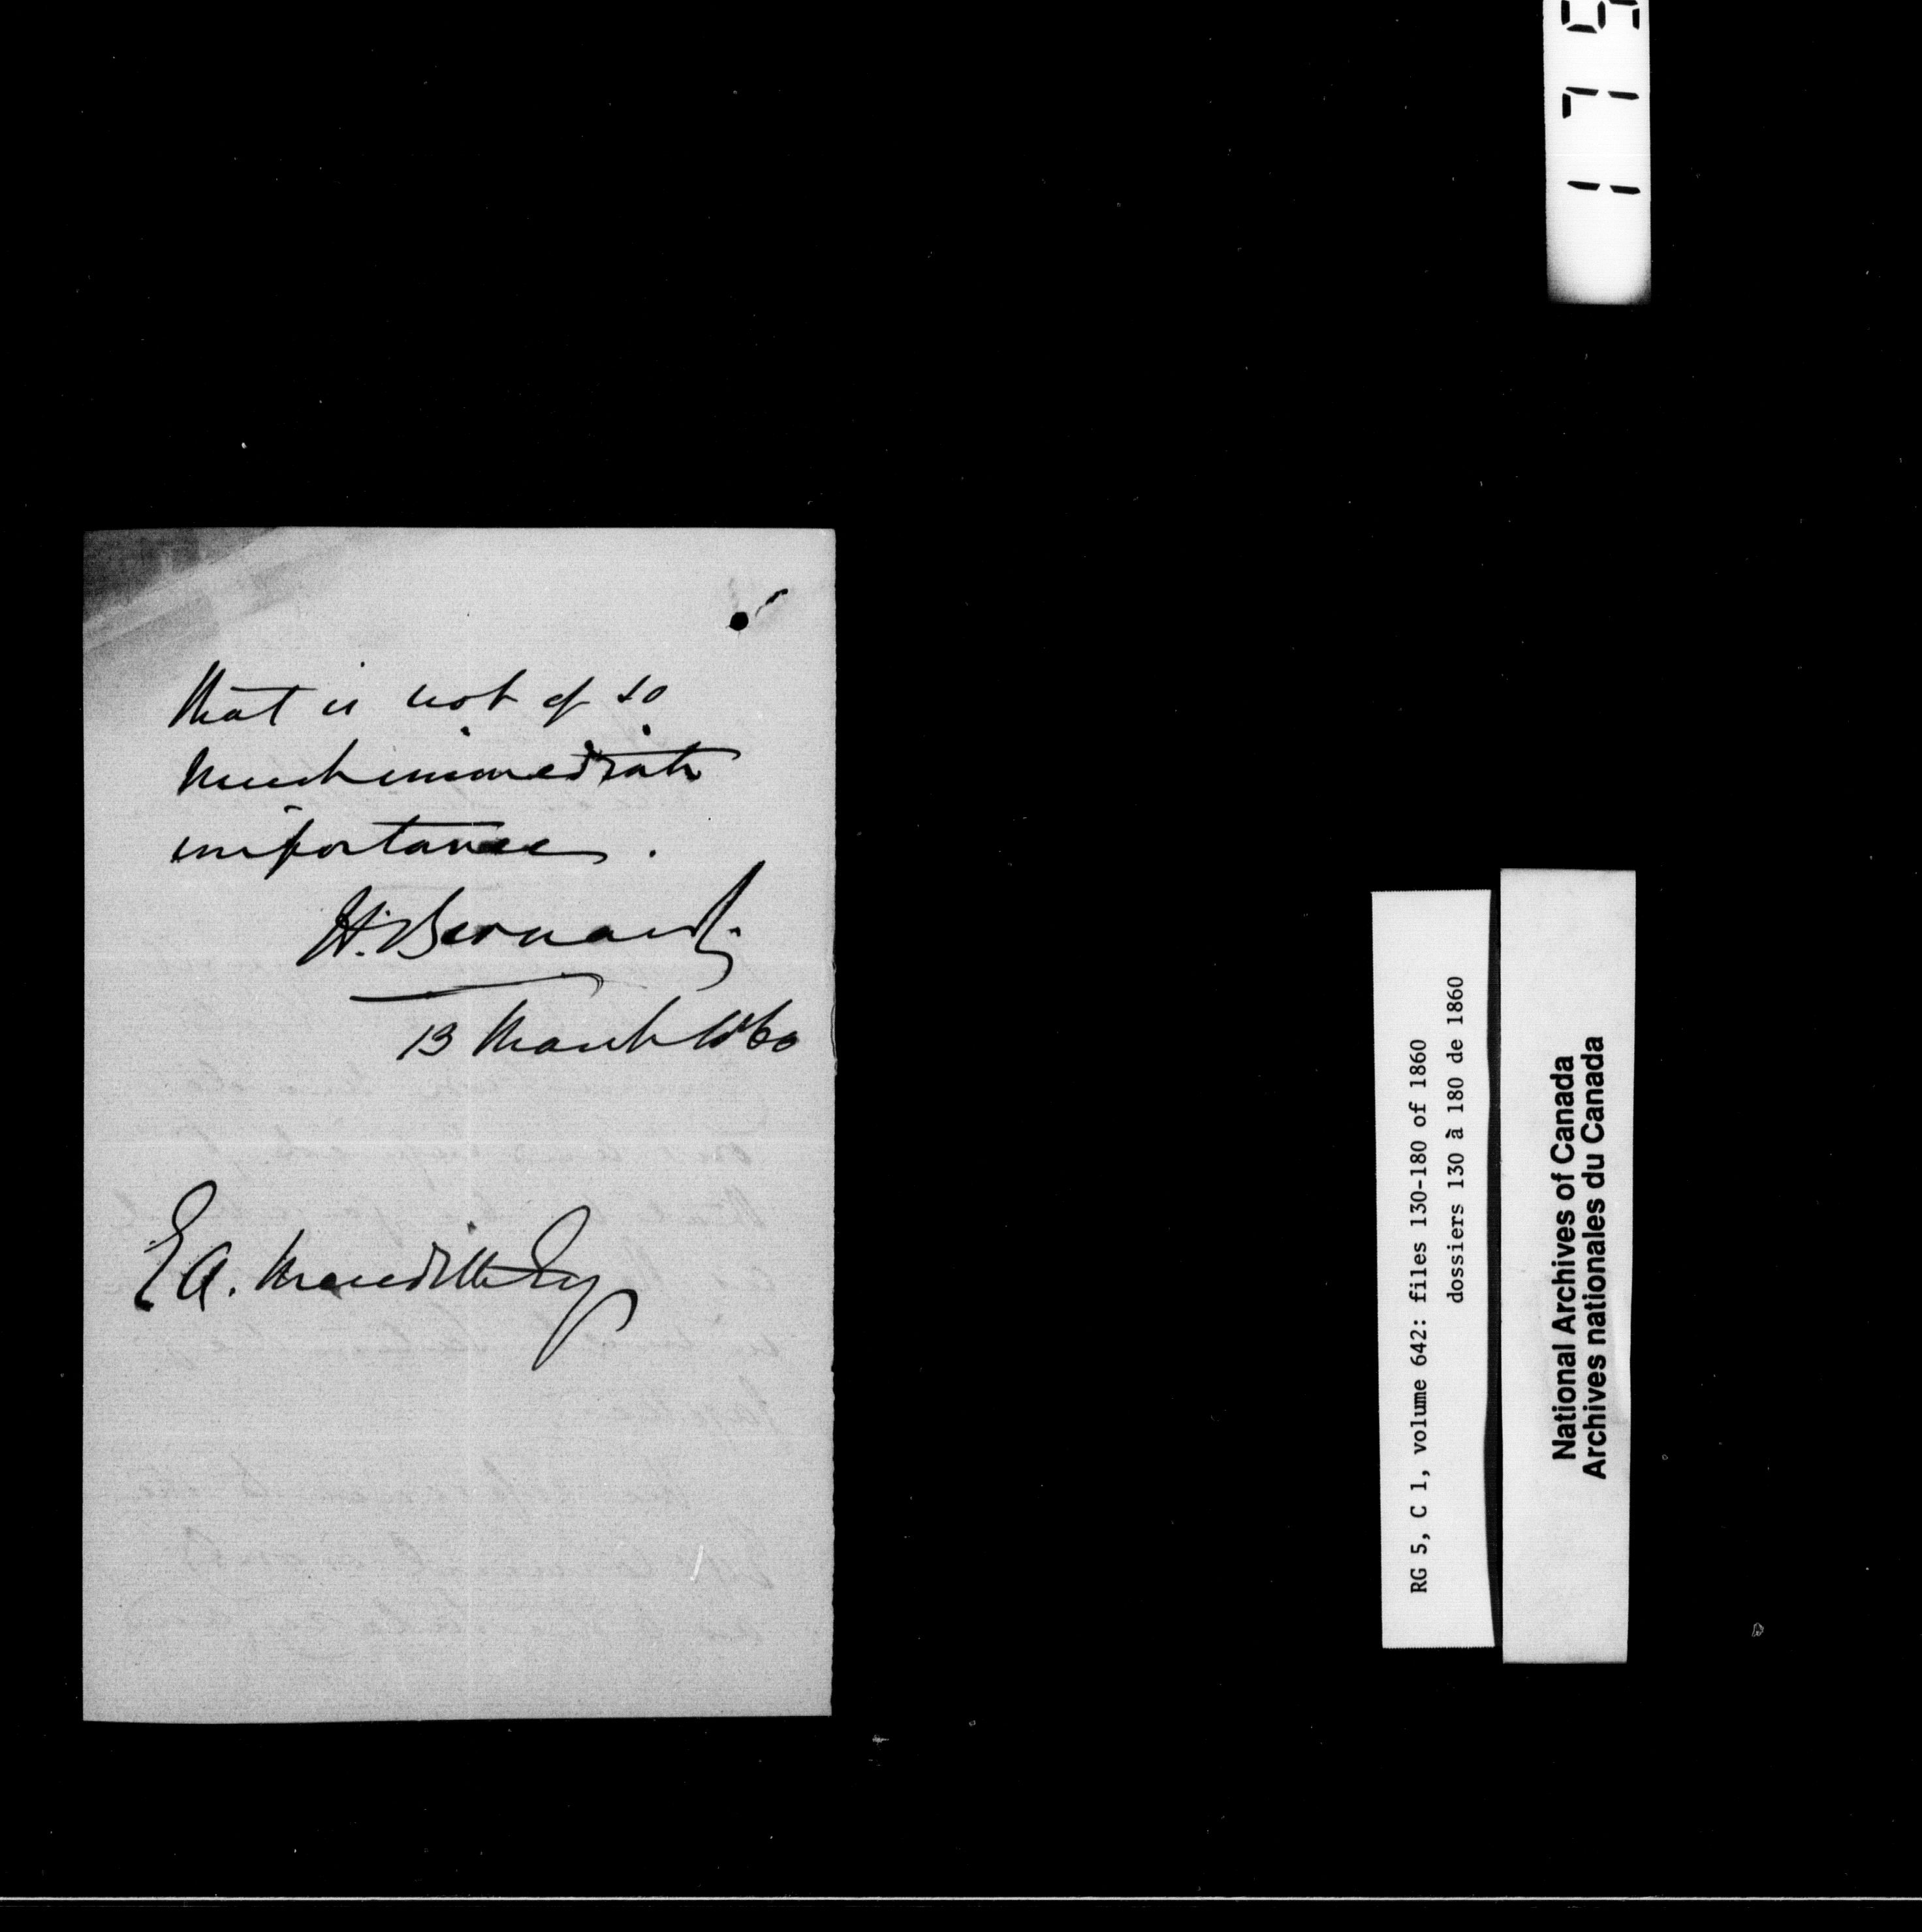 that is not of so
much immediate
importance.
H. Bernard
13 March 1860
E A. Meredith Esq
RG 5, C 1, volume 642: files 130-180 of 1860
dossiers 130 à 180 de 1860
National Archives of Canada
Archives nationales du Canada